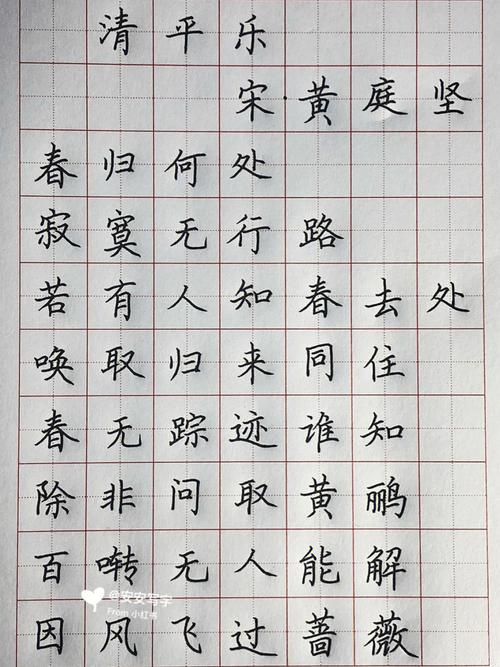 清平乐
宋·黄庭坚
春归何处
寂寞无行路
若有人知春去处
唤取归来同住
春无踪迹谁知
除非问取黄鹂
百啭无人能解
因风飞过蔷薇
@安安写字
From 小红书